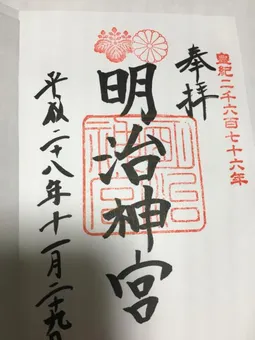 皇紀二千六百七十六年
奉拝
明治神宮
平成二十八年十一月二十九日